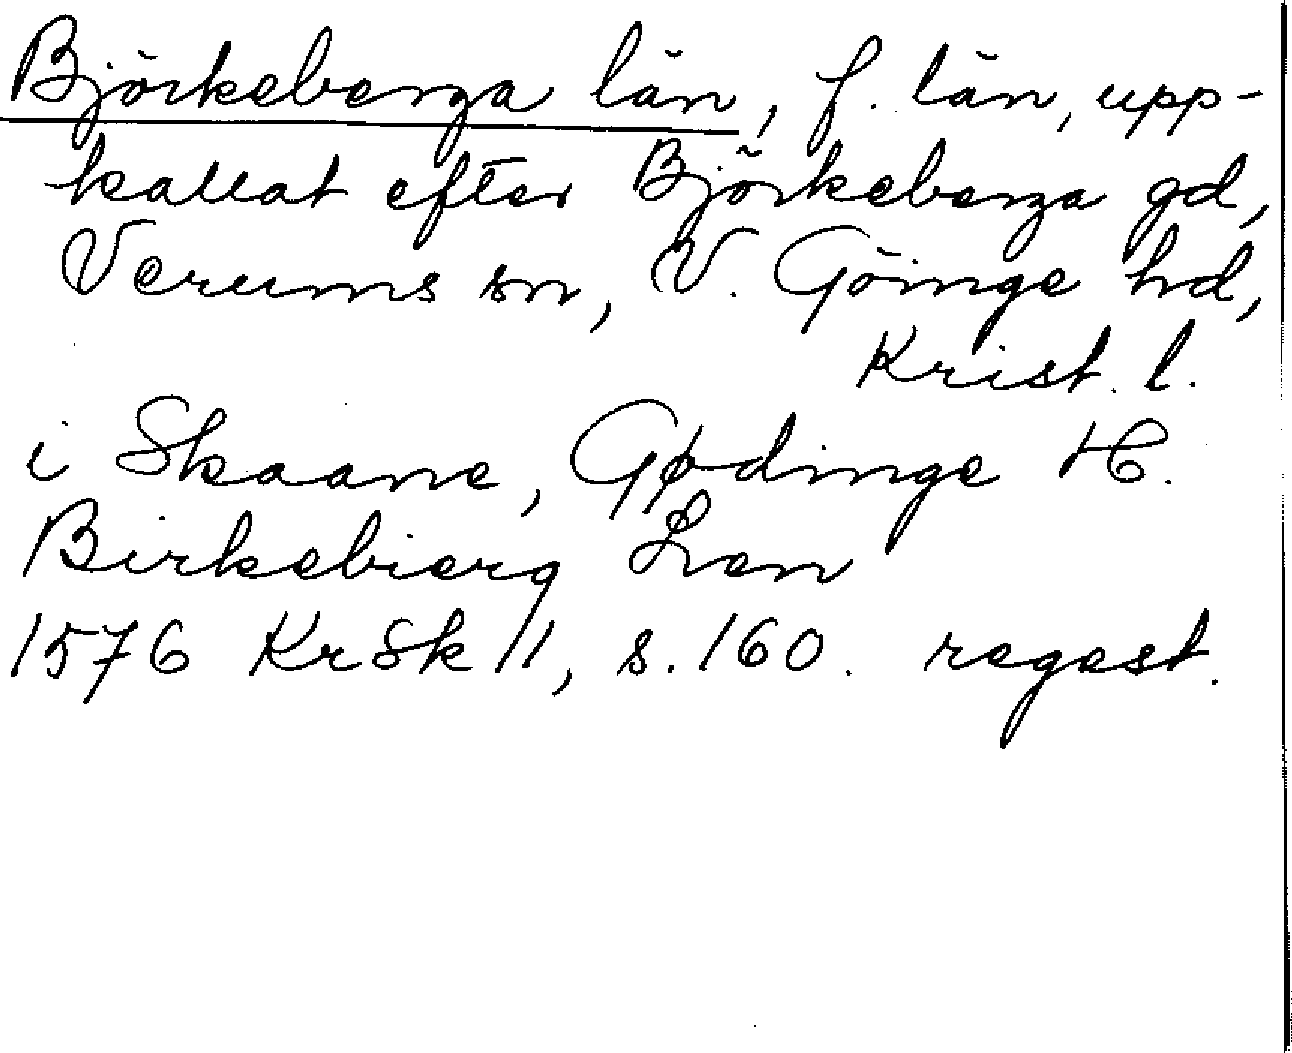 Björkeberga län, f. län, upp-
kallat efter Björkeberga gd,
Verums sn, V. Göinge hd,
Krist. l.
i Skaane, Gødinge H.
Birkebierg Len
1576 KrSk II, s. 160. regest.